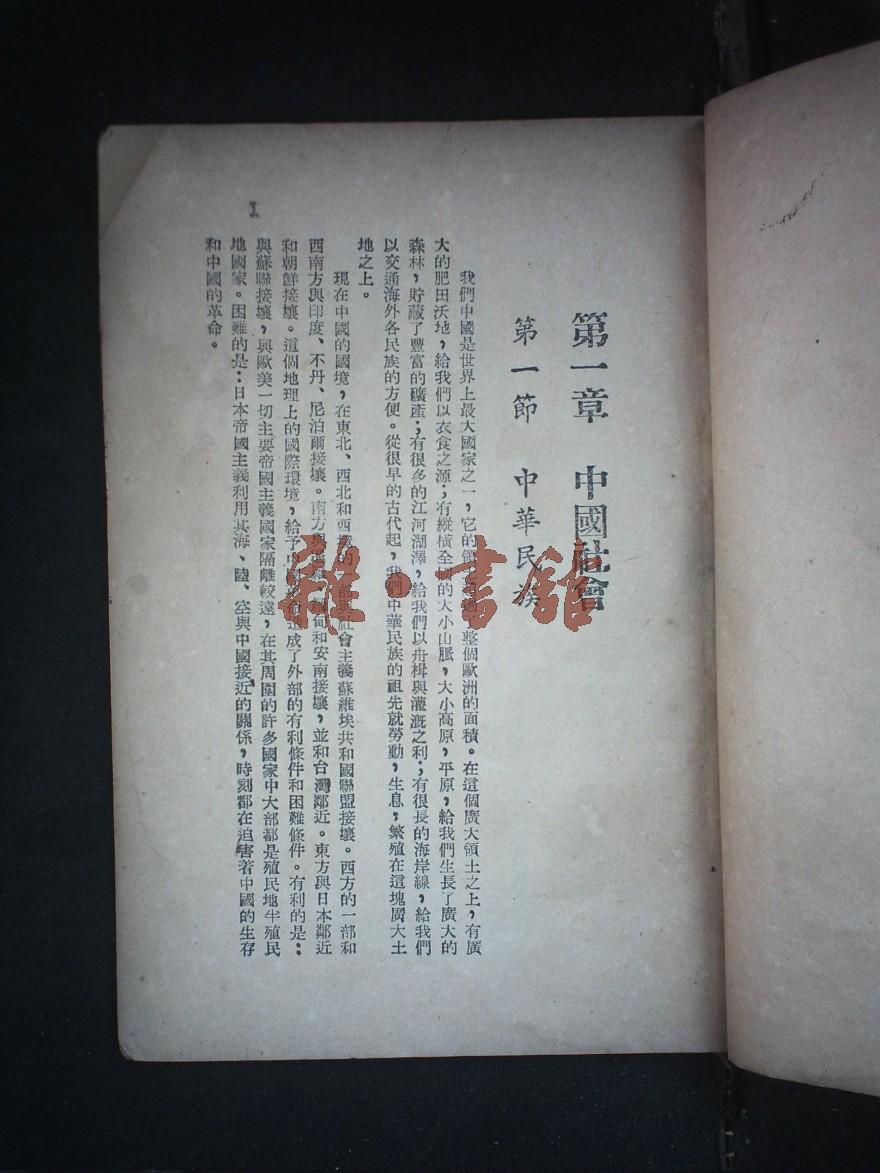 第一章　中國社會
第一節　中華民族
我們中國是世界上最大國家之一，它的領土整個歐洲的面積。在這個廣大領土之上，有廣
大的肥田沃地，給我們以衣食之源；有縱橫全的大小山脈，大小高原，平原，給我們生長了廣大的
森林，貯藏了豐富的礦產；有很多的江河湖澤，給我們以舟楫與灌溉之利；有很長的海岸線，給我們
以交通海外各民族的方便。從很早的古代起，我們中華民族的祖先就勞動，生息，繁殖在這塊廣大土
地之上。
現在中國的國境，在東北、西北和西的部與社會主義蘇維埃共和國聯盟接壤。西方的一部和
西南方與印度、不丹、尼泊爾接壤。南方與甸和安南接壤，並和台灣鄰近。東方與日本鄰近
和朝鮮接壤。這個地理上的國際環境，給予中造成了外部的有利條件和困難條件。有利的是：
與蘇聯接壤，與歐美一切主要帝國主義國家隔離較遠，在其周圍的許多國家中大部都是殖民地半殖民
地國家。困難的是：日本帝國主義利用其海、陸、空與中國接近的關係，時刻都在迫害著中國的生存
和中國的革命。
1
雜·書館